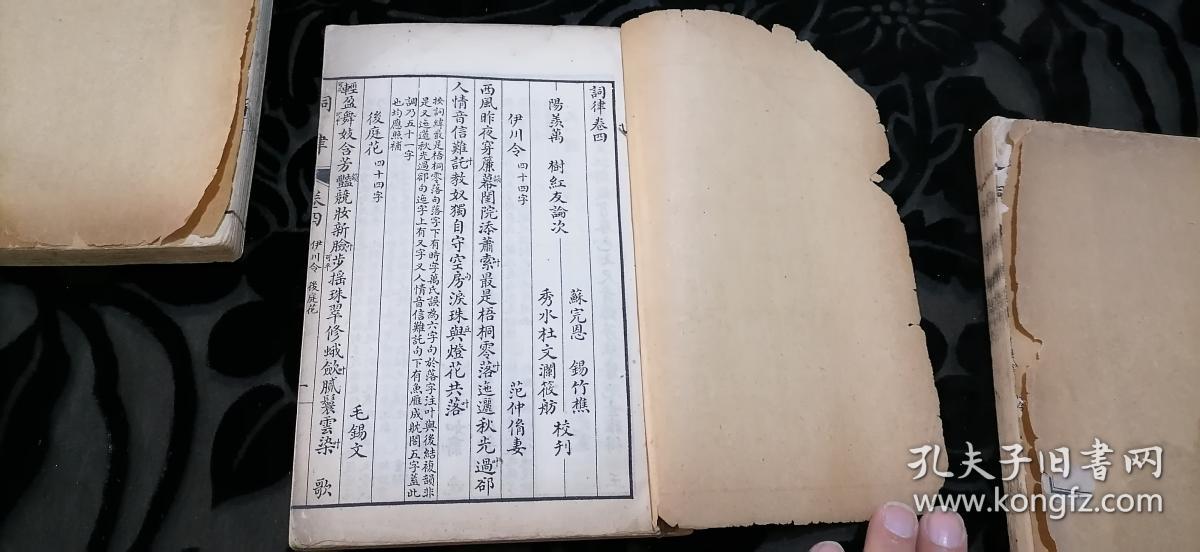 詞律卷四
陽羨萬 樹紅友論次
蘇完恩 錫竹樵
秀水杜文瀾筱舫 校刊
伊川令 四十四字 范仲脩妻
西風昨夜穿簾幕閨院添蕭索最是梧桐零落迤邐秋光過郤
人情音信難託教奴獨自守空房淚珠與燈花共落
按詞緯最是梧桐零落句落字下有時字萬氏誤為六字句於落字注叶與後結複韻非
是又迤邐秋光過郤句迤字上有又字又人情音信難託句下有魚雁成躭閣五字蓋此
調乃五十一字
也均應照補
後庭花 四十四字 毛錫文
輕盈舞妓含芳豔競妝新臉步搖珠翠修蛾斂膩鬟雲染 歌
詞律 卷四 伊川令 後庭花
孔夫子旧书网
www.kongfz.com